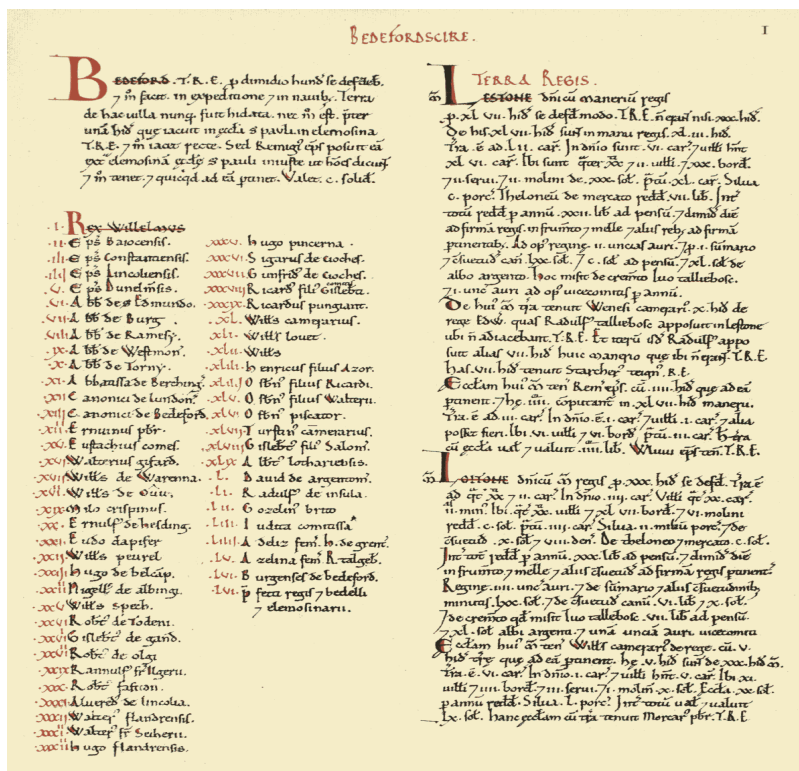 BEDEFORDSCIRE.
I
BEDEFORD. T.R.E. p dimidio hund se defdeb.
⁊ m̃ facit. in expeditione ⁊ in nauib;. Terra
de hac uilla nunq̃ fuit hidata. nec m̃ est. p̃ter
unā hid̃ que iacuit in æccla S pauli in elemosina
T.R.E. ⁊ m̃ iacet recte. Sed Remigi ep̃s posuit eā
ext̃ elemosinā æcclæ S pauli iniuste ut hoẽs dicunt
⁊ m̃ tenet. ⁊ quicq̃d ad eā ptinet. Valet. c. solid.
.I. Rex Willelmus
.II. Ep̃s Baiocensis.
.III. Ep̃s Constantiensis.
.IIII. Ep̃s Lincoliensis.
.V. Ep̃s Dunelmsis.
.VI. Abb̃ de S Edmundo.
.VII. Abb̃ de Burg.
.VIII. Abb̃ de Ramesy.
.IX. Abb̃ de Westmon̄.
.X. Abb̃ de Torny.
.XI. Abbatissa de Berching
.XII. Canonici de Lundon̄.
.XIII. Canonici de Bedeford.
.XIIII. Ernuinus pbr.
.XV. Eustachius comes.
.XVI. Walterius Gifard.
.XVII. Wills de Warenna.
.XVIII. Wills de Ou.
.XIX. Milo crispinus.
.XX. Ernulf de hesding.
.XXI. Eudo dapifer
.XXII. Wills peurel
.XXIII. Hugo de belcāp.
.XXIIII. Nigell de albingi
.XXV. Wills spech.
.XXVI. Robt de Todeni.
.XXVII. Gislebt de gand.
.XXVIII. Robt de olgi
.XXIX. Rannulf fr̃ Ilgerii.
.XXX. Robt fafiton.
.XXXI. Alvered de lincolia.
.XXXII. Walter flandrensis.
.XXXIII. Walter fr̃ Seiherii.
.XXXIIII. Hugo flandrensis.
.XXXV. Hugo pincerna.
.XXXVI. Sigarus de Cioches.
.XXXVII. Gunfrid de Cioches.
.XXXVIII. Ricard fili Gislebti comitis
.XXXIX. Ricardus pungiant.
.XL. Wills camerarius.
.XLI. Wills lovet.
.XLII. Wills
.XLIII. Henricus filius Azor.
.XLIIII. Osbn filius Ricardi.
.XLV. Osbn filius Walterii.
.XLVI. Osbn piscator.
.XLVII. Turstin camerarius.
.XLVIII. Gislebt fili Salom̃.
.XLIX. Albt lothariensis.
.L. David de argentom̃.
.LI. Radulf de insula.
.LII. Gozelin brito
.LIII. Iudita comitissa
.LIIII. Adeliz fem̃. H. de grent.
.LV. Azelina fem̃ R. talgeb.
.LVI. Burgenses de bedeford.
.LVII. P̃fecti regis ⁊ bedelli
⁊ elemosinarii.
TERRA REGIS.
m̃ LESTONE dñicū manerium regis
p. XL VII. hid̃ se defd̃ modo. T.R.E. ñ erant nisi. XXX. hid̃.
De his. XL VII. hid̃ sunt in manu regis. XL. III. hid̃.
Tr̃a. ē ad. L II. car̃. In dñio sunt. VI. car̃. ⁊ uilli hñt
XL VI. car̃. Ibi sunt quater̃ XX. ⁊ II. uilli. ⁊ XXX. bord̃.
⁊ II. serui. ⁊ II. molini de. XXX. sol̃. p̃tū. XL. car̃. Silua
C. porc̃. Theloneū de mercato redd̃. VII. lib̃. Int̃
totū redd̃ p annū. XXII. lib̃ ad pensū. ⁊ dimid̃ diē
ad firmā regis in frumto ⁊ melle ⁊ aliis reb; ad firmā
ptinentib;. Ad op̃ reginæ. II. uncias auri. ⁊ p. I. sumario
⁊ c̃suetud̃ can̄. LXX. sol̃. ⁊ C. sol̃ ad pensū. ⁊ XL. sol̃ de
albo argento. hoc misit de crem̃to Iuo taillebosc.
⁊ I. unc̃ auri ad op̃ uicecomitis p annū.
De hui m̃ tr̃a tenuit Wenesi camerari. X. hid̃ de
rege Edw. quas Radulf talliebosc apposuit in Lestone
ubi ñ adiacebant T.R.E. Et iterū isd̃ Radulf appo
suit alias VII. hid̃ huic manerio que ibi ñ erant T.R.E.
Has. VII. hid̃ tenuit Starcher teign R.E.
Æcclam hui m̃ ten̄ Remi ep̃s. cū. IIII. hid̃ que ad eā
ptinent. ⁊ hæ. IIII. cōputant̃ in. XL VII. hid̃ manerii.
Tr̃a. ē ad. III. car̃. In dñio. ē. I. car̃. ⁊ uilli. I. car̃. ⁊ alia
posset fieri. Ibi. VI. uilli ⁊ VI. bord̃. p̃tū. III. car̃. H̃ tr̃a
cū æccla ual̃ ⁊ ualuit. IIII. lib̃. Wluui ep̃s ten̄. T.R.E.
m̃ LOITONE dñicū m̃ regis p. XXX. hid̃ se defd̃. Tr̃a ē
ad quat̃ XX ⁊ II. car̃. In dñio. IIII. car̃. Villi quat̃ XX. car̃.
II. min. Ibi quat̃. XX. uilli ⁊ XL VII. bord̃. ⁊ VI. molini
redd̃. C. sol̃. p̃tū. IIII. car̃. Silua. II. miliū porc̃. ⁊ de
c̃suetud̃. X. sol̃ ⁊ VIII. den̄. De theloneo ⁊ mercato. C. sol̃.
Int̃ tot̃ redd̃ p annū. XXX. lib̃ ad pensū. ⁊ dimid̃ diē
in frumto ⁊ melle ⁊ aliis c̃suetud̃ ad firmā regis ptinent̃.
Reginæ. IIII. unc̃ auri. ⁊ de sūmario ⁊ aliis c̃suetudinib;
minutis. LXX. sol̃. ⁊ de c̃suetud̃ canū. VI. lib̃ ⁊ X. sol̃.
⁊ de crem̃to qd̃ misit Iuo tallebosc. VII. lib̃ ad pensū.
⁊ XL. sol̃ albi argenti. ⁊ unā unciā auri uicecomiti
Æcclam hui m̃ ten̄ Wills camerari de rege. cū. V.
hid̃ tr̃æ que ad eā ptinent. hæ. V. hid̃ sunt de. XXX. hid̃ m̃.
Tr̃a. ē. VI. car̃. In dñio. I. car̃. ⁊ uilli hñt. V. car̃. Ibi. XI.
uilli ⁊ IIII. bord̃. ⁊ III. serui. ⁊ I. molin̄. X. sol̃. Æccla. XX. sol̃.
p annū redd̃. Silua. L. porc̃. Int̃ totū ual̃ ⁊ ualuit
LX. sol̃. Hanc æcclam cū tr̃a tenuit Morcar pbr. T.R.E